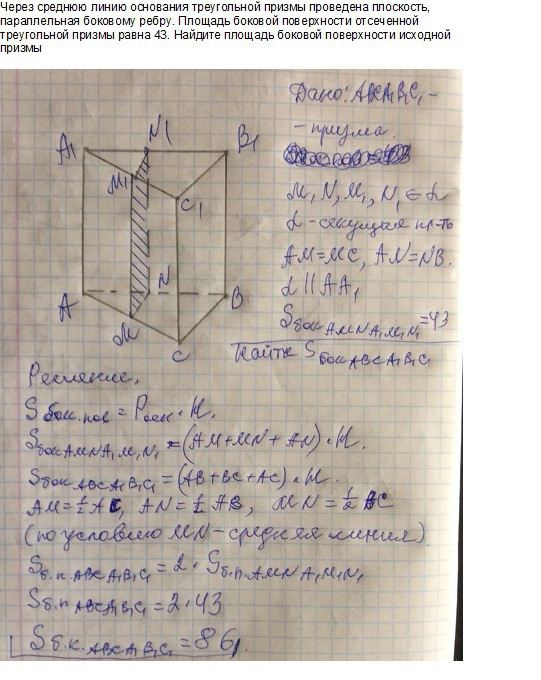 Через среднюю линию основания треугольной призмы проведена плоскость,
параллельная боковому ребру. Площадь боковой поверхности отсеченной
треугольной призмы равна 43. Найдите площадь боковой поверхности исходной
призмы
Дано: ABCA₁B₁C₁ -
- призма.
M, N, M₁, N₁ ∈ α
α - секущая пл-ть
AM=MC, AN=NB.
α || AA₁
Sбок AMNA₁M₁N₁ = 43
Найти Sбок ABCA₁B₁C₁
A₁ N₁ B₁
M₁
C₁
A N B
M
C
Решение.
Sбок.пов = Pосн · H.
Sбок AMNA₁M₁N₁ = (AM+MN+AN) · H.
Sбок ABCA₁B₁C₁ = (AB+BC+AC) · H.
AM = ½ AC, AN = ½ AB, MN = ½ BC
(по условию MN - средняя линия)
Sб.п. ABCA₁B₁C₁ = 2 · Sб.п. AMNA₁M₁N₁
Sб.п ABCA₁B₁C₁ = 2 · 43
Sб.к. ABCA₁B₁C₁ = 86